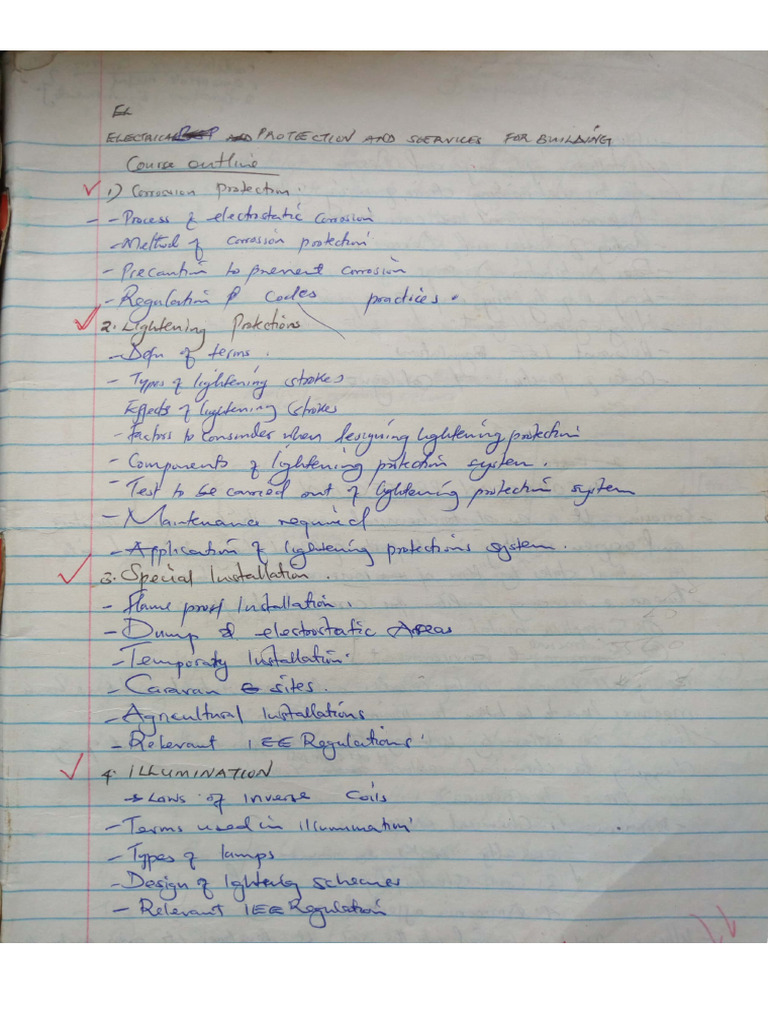 EL
ELECTRICAL PROTECTION AND SERVICES FOR BUILDING
Course outline
1) Corrosion Protection.
- Process of electrostatic corrosion
- Method of corrosion protection
- Precaution to prevent corrosion
- Regulation & Codes practices.
2. Lightening Protections
- Defn of terms.
- Types of lightening strokes
Effects of lightening strokes
- factors to consinder when designing lightening protection
- Components of lightening protection system.
- Test to be carried out of lightening protection system
- Maintenance required
- Application of lightening protections system.
3. Special Installation.
- flame proof Installation.
- Dump & electrostatic Areas
- Temporaty Installation.
- Caravan sites.
- Agricultural Installations
- Relevant IEE Regulations.
4. ILLUMINATION
- Laws of inverse Coils
- Terms used in illumination
- Types of lamps
- Design of lghterlig schemes
- Relevant IEE Regulation